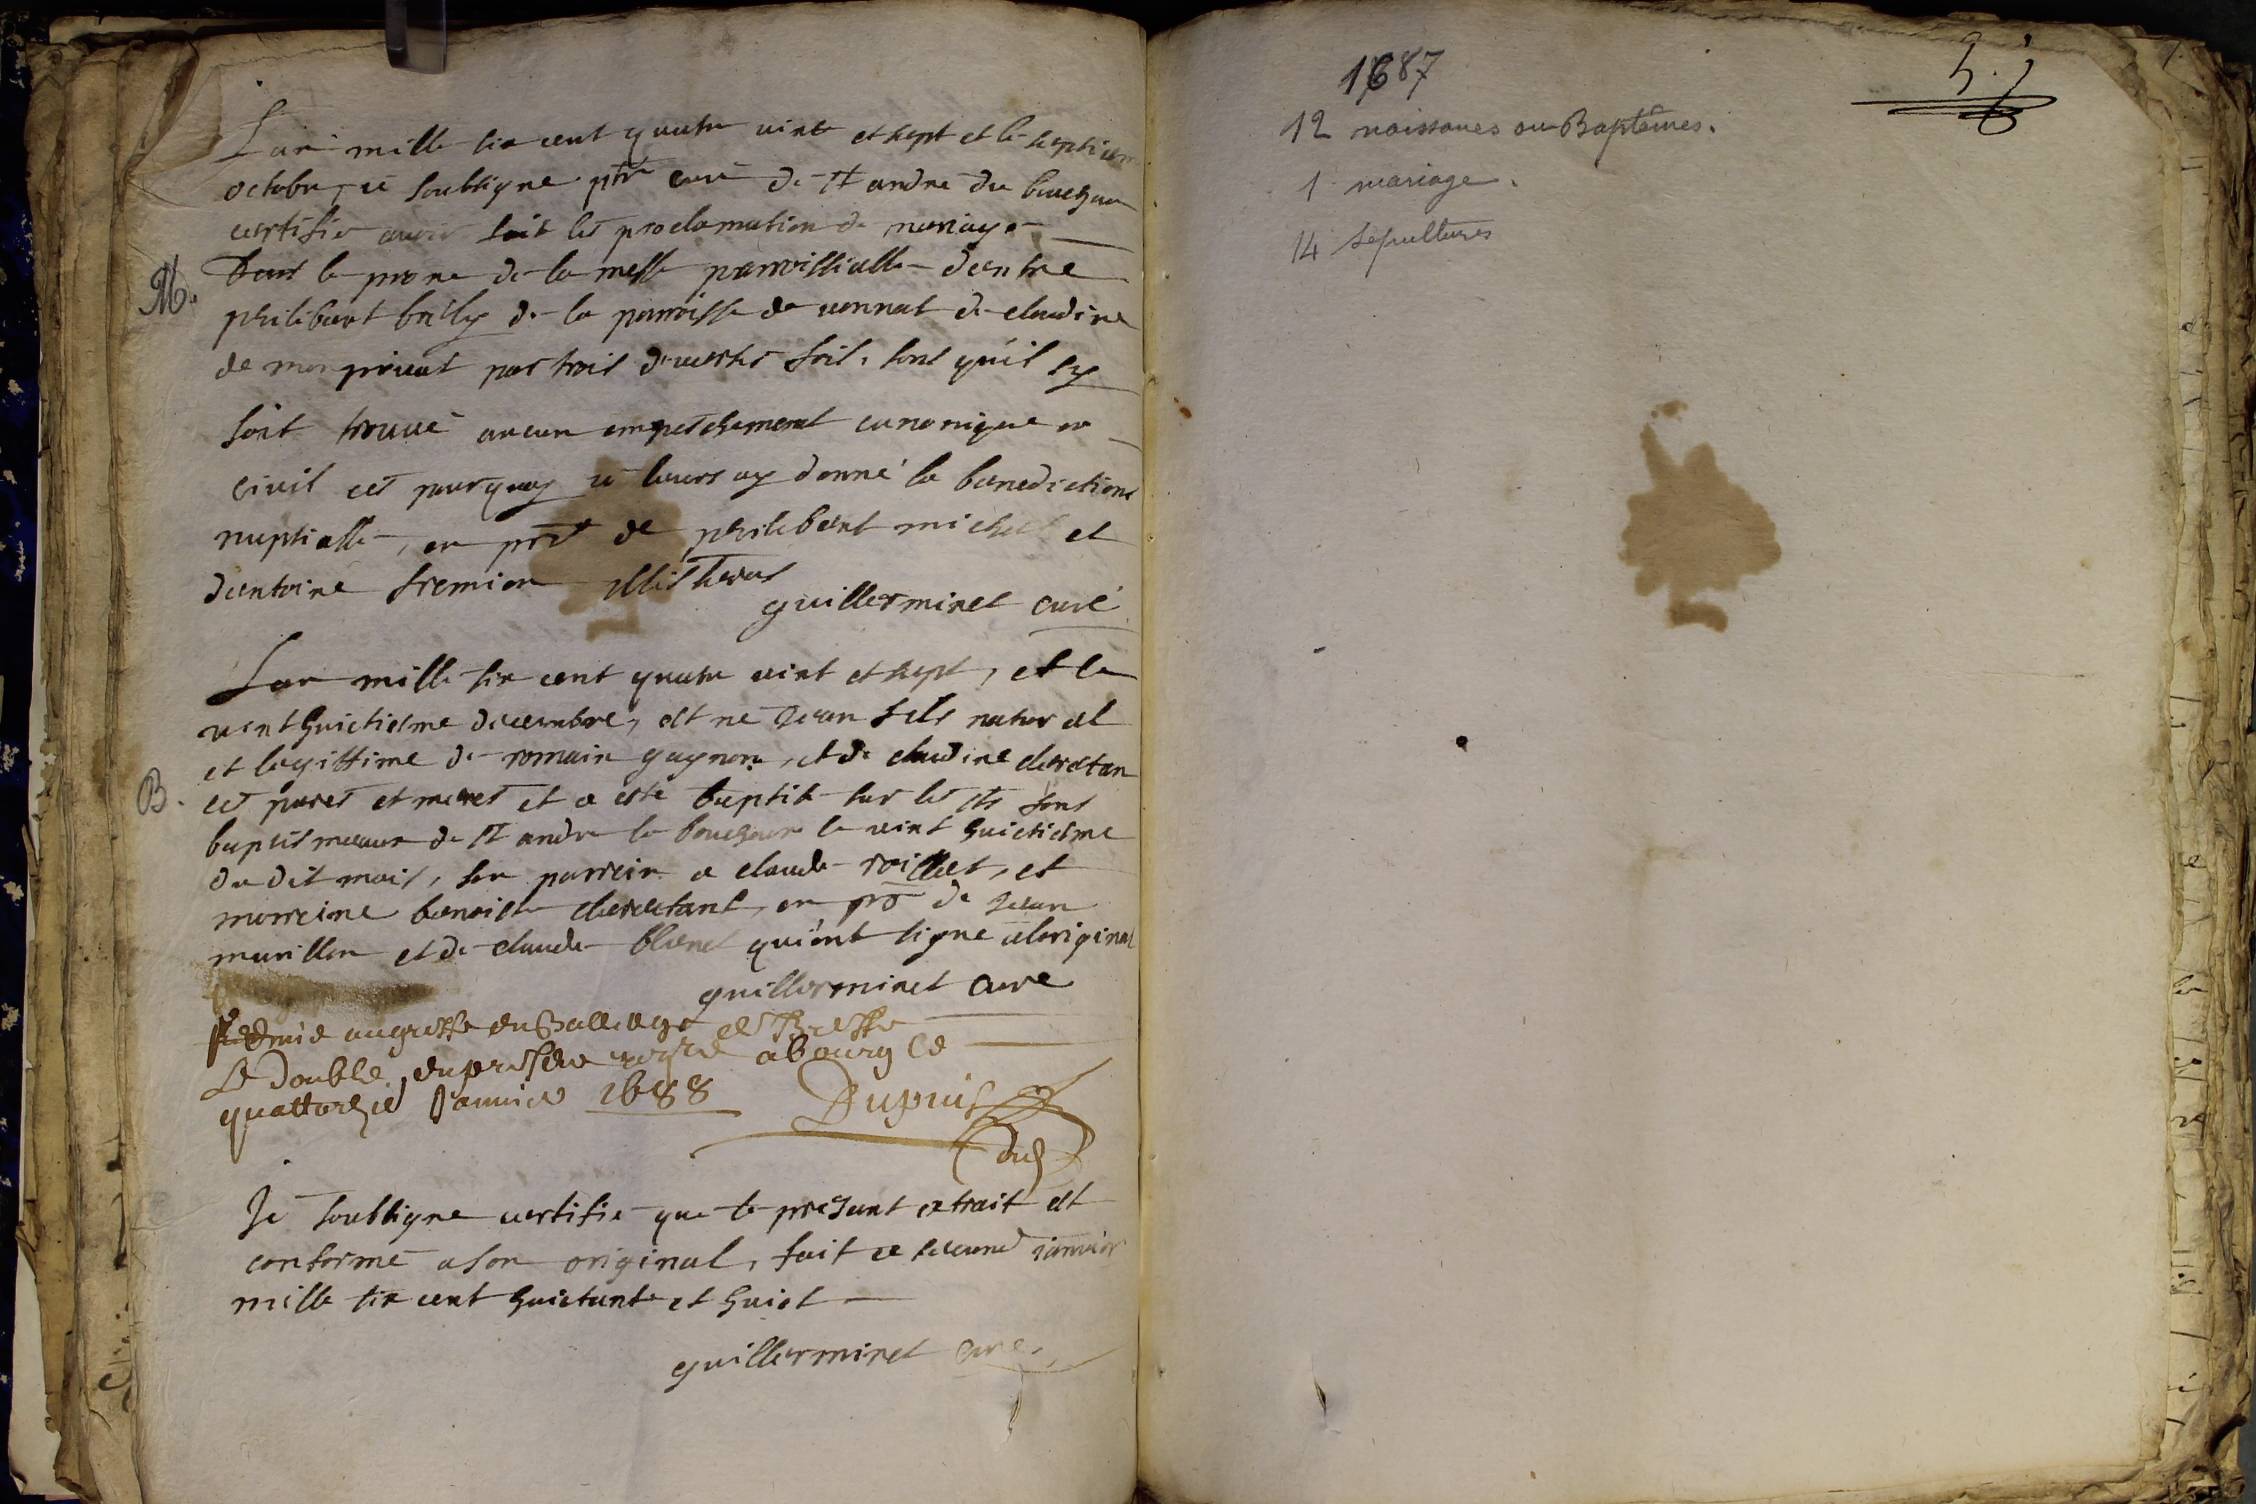 L'an mille six cent quatre vint et sept et le septiem
octobre, ie soubsigne ptre curé de st andré du bouchou
certifie avoir fait les proclamation de mariage
dans le prone de la messe parroissialle d'entre
M.
philibert bailly de la parroisse de vonnat de claudine
de mon privat par trois diverses fois, sans qu'il sy
soit trouvé aucun empeschement canonique ou
civil cet pourquoy ie leurs ay donné la benediction
nuptialle, en pnt de philibert michel et
d'antoine fremion
guillerminet curé
L'an mille six cent quatre vint et sept, et le
vint huictiesme decembre, est né Jean fils naturel
et legittime de romain gagnon, et de claudine cheretan
B.
ces peres et meres et a este baptise sur les sts fons
baptismeaux de st andre le bouchou le vint huictiesme
du dit mois, son parrein a claude et
marreine benoiste cheretant, en pre de Jean
marillon et de claude blanc qui ont signe a loriginal
guillerminet cure
Remis au greffe du Balliage de Bresse
Le double du present regre a bourg ce
quattorze Janvier 1688 Dupuis
Je soubsigne certifie que le present extrait est
conforme a son original, fait ce second janvier
mille six cent huictante et huict
guillerminet cure
1687
12 naissances ou Baptêmes.
1 mariage.
14 sépultures